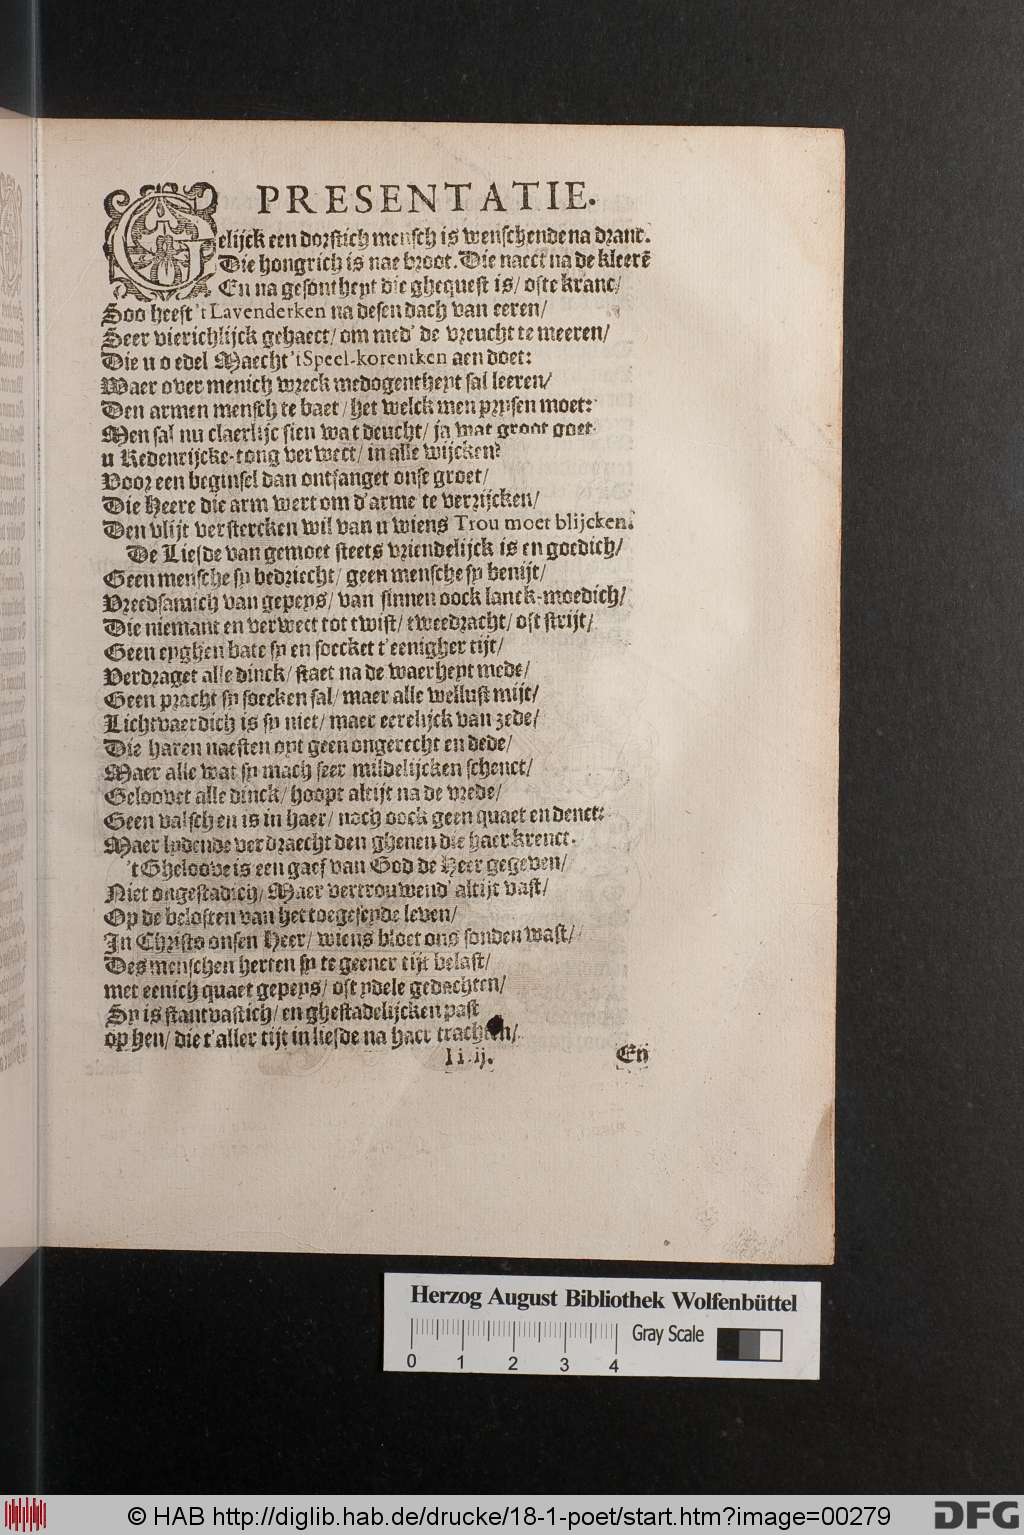 PRESENTATIE.
Gelijck een dorstich mensch is wenschende na dranc.
Die hongrich is nae broot. Die naect na de kleerē
En na gesontheyt die ghequest is/ ofte kranc/
Soo heeft 't Lavenderken na desen dach van eeren/
Seer vierichlijck gehaect/ om med' de vreucht te meeren/
Die u o edel Maecht 't Speel-korenken aen doet:
Waer over menich vreck medogentheyt sal leeren/
Den armen mensch te baet/ het welck men prysen moet:
Men sal nu claerlijc sien wat deucht/ ja wat groot goet
u Redenrijcke-tong verwect/ in alle wijcken?
Voor een beginsel dan ontfanget onse groet/
Die Heere die arm wert om d'arme te verrijcken/
Den vlijt verstercken wil van u wiens Trou moet blijcken.
De Liefde van gemoet steets vriendelijck is en goedich/
Geen mensche sy bedriecht/ geen mensche sy benijt/
Vreedsamich van gepeys/ van sinnen oock lanck-moedich/
Die niemant en verwect tot twist/ tweedracht/ oft strijt/
Geen eyghen bate sy en soecket t'eenigher tijt/
Verdraget alle dinck/ staet na de waerheyt mede/
Geen pracht sy soecken sal/ maer alle wellust mijt/
Lichtvaerdich is sy niet/ maer eerelijck van zede/
Die haren naesten oyt geen ongerecht en dede/
Maer alle wat sy mach seer mildelijcken schenct/
Geloovet alle dinck/ hoopt altijt na de vrede/
Geen valsch en is in haer/ noch oock geen quaet en denct:
Maer lydende verdraecht den ghenen die haer krenct.
't Gheloove is een gaef van God de Heer gegeven/
Niet ongestadich/ Maer vertrouwend' altijt vast/
Op de beloften van het toegeseyde leven/
In Christo onsen Heer/ wiens bloet ons sonden wast/
Des menschen herten sy te geener tijt belast/
met eenich quaet gepeys/ oft ydele gedachten/
Sy is stantvastich/ en ghestadelijcken past
op hen/ die t'aller tijt in liefde na haer trachten/
Ii.ij.
En
Herzog August Bibliothek Wolfenbüttel
Gray Scale
0 1 2 3 4
© HAB http://diglib.hab.de/drucke/18-1-poet/start.htm?image=00279
DFG